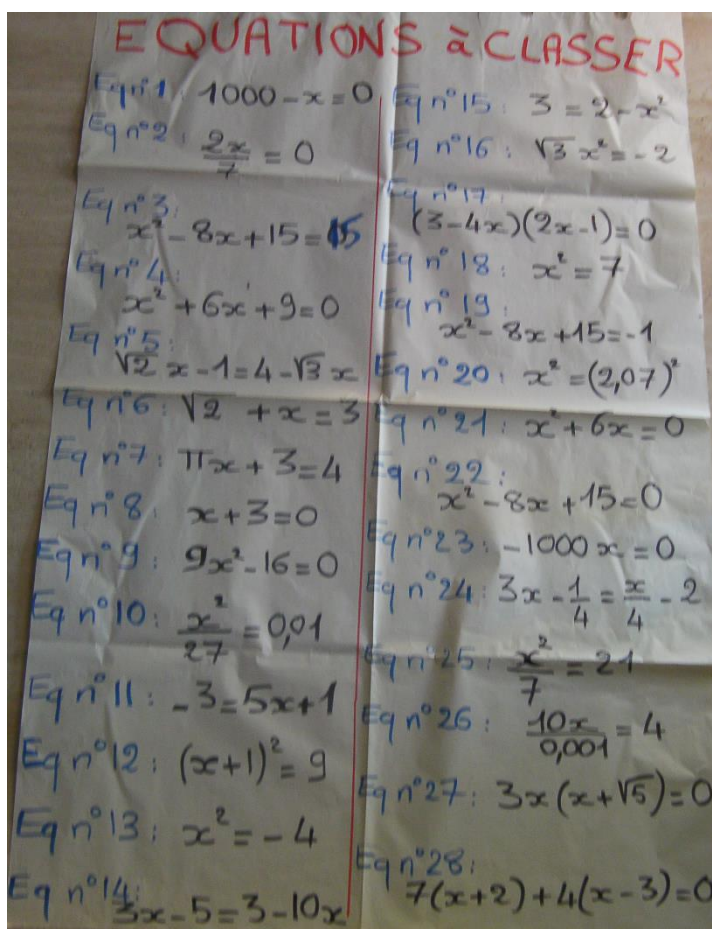 EQUATIONS à CLASSER
Eq n°1: 1000 - x = 0
Eq n°2: 2x/7 = 0
Eq n°3:
x² - 8x + 15 = 15
Eq n°4:
x² + 6x + 9 = 0
Eq n°5:
√2 x - 1 = 4 - √3 x
Eq n°6: √2 + x = 3
Eq n°7: πx + 3 = 4
Eq n°8: x + 3 = 0
Eq n°9: 9x² - 16 = 0
Eq n°10: x²/27 = 0,01
Eq n°11: -3 = 5x + 1
Eq n°12: (x+1)² = 9
Eq n°13: x² = -4
Eq n°14:
3x - 5 = 3 - 10x
Eq n°15: 3 = 2 - x²
Eq n°16: √3 x² = -2
Eq n°17:
(3 - 4x)(2x - 1) = 0
Eq n°18: x² = 7
Eq n°19:
x² - 8x + 15 = -1
Eq n°20: x² = (2,07)²
Eq n°21: x² + 6x = 0
Eq n°22:
x² - 8x + 15 = 0
Eq n°23: -1000x = 0
Eq n°24: 3x - 1/4 = x/4 - 2
Eq n°25: x²/7 = 21
Eq n°26: 10x/0,001 = 4
Eq n°27: 3x(x + √5) = 0
Eq n°28:
7(x+2) + 4(x-3) = 0